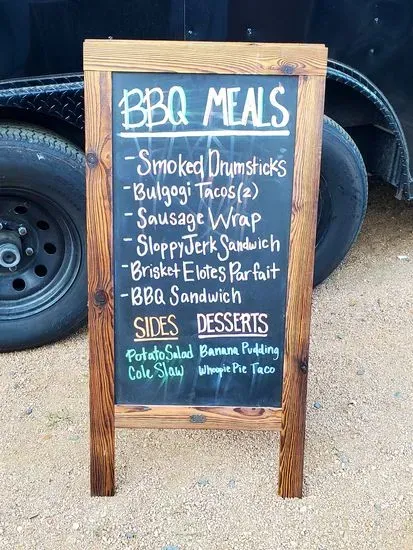 BBQ MEALS
- Smoked Drumsticks
- Bulgogi Tacos (2)
- Sausage Wrap
- Sloppy Jerk Sandwich
- Brisket Elotes Parfait
- BBQ Sandwich
SIDES DESSERTS
Potato Salad Banana Pudding
Cole Slaw Whoopie Pie Taco